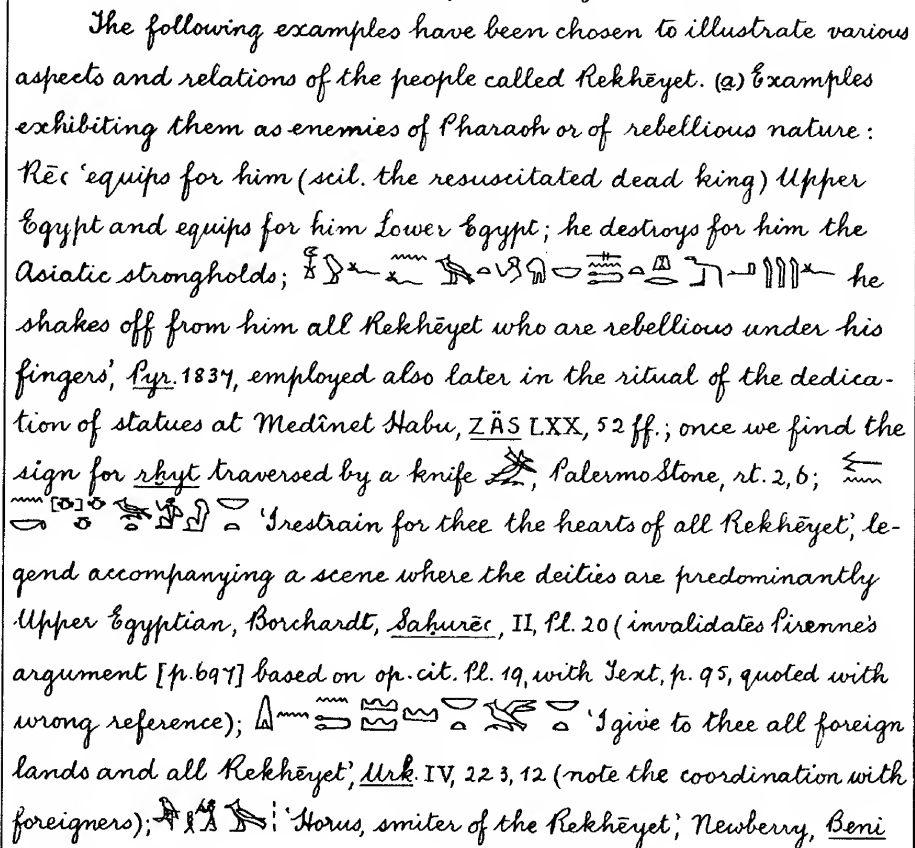 The following examples have been chosen to illustrate various
aspects and relations of the people called Rekhēyet. (a) Examples
exhibiting them as enemies of Pharaoh or of rebellious nature :
Rēꜥ ‘equips for him (scil. the resuscitated dead king) Upper
Egypt and equips for him Lower Egypt; he destroys for him the
Asiatic strongholds; he
shakes off from him all Rekhēyet who are rebellious under his
fingers’, Pyr. 1837, employed also later in the ritual of the dedica-
tion of statues at Medînet Habu, ZÄS LXX, 52 ff.; once we find the
sign for rḫyt traversed by a knife , Palermo Stone, rt. 2, 6;
‘I restrain for thee the hearts of all Rekhēyet’, le-
gend accompanying a scene where the deities are predominantly
Upper Egyptian, Borchardt, Saḥurēꜥ, II, Pl. 20 (invalidates Pirenne's
argument [p. 697] based on op. cit. Pl. 19, with Text, p. 95, quoted with
wrong reference); ‘I give to thee all foreign
lands and all Rekhēyet’, Urk. IV, 223, 12 (note the coordination with
foreigners); ‘Horus, smiter of the Rekhēyet’, Newberry, Beni